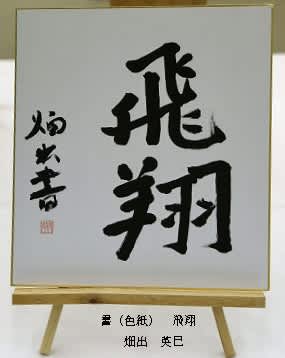 飛翔
畑出書
書(色紙) 飛翔
畑出 英巳